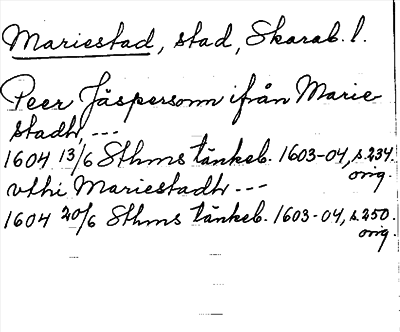 Mariestad, stad, Skarab. l.
Peer Jäspersonn ifrån Marie-
stadh, ---
1604 13/6 Sthms tänkeb. 1603-04, s. 234.
orig.
vthi Mariestadh ---
1604 20/6 Sthms tänkeb. 1603-04, s. 250.
orig.